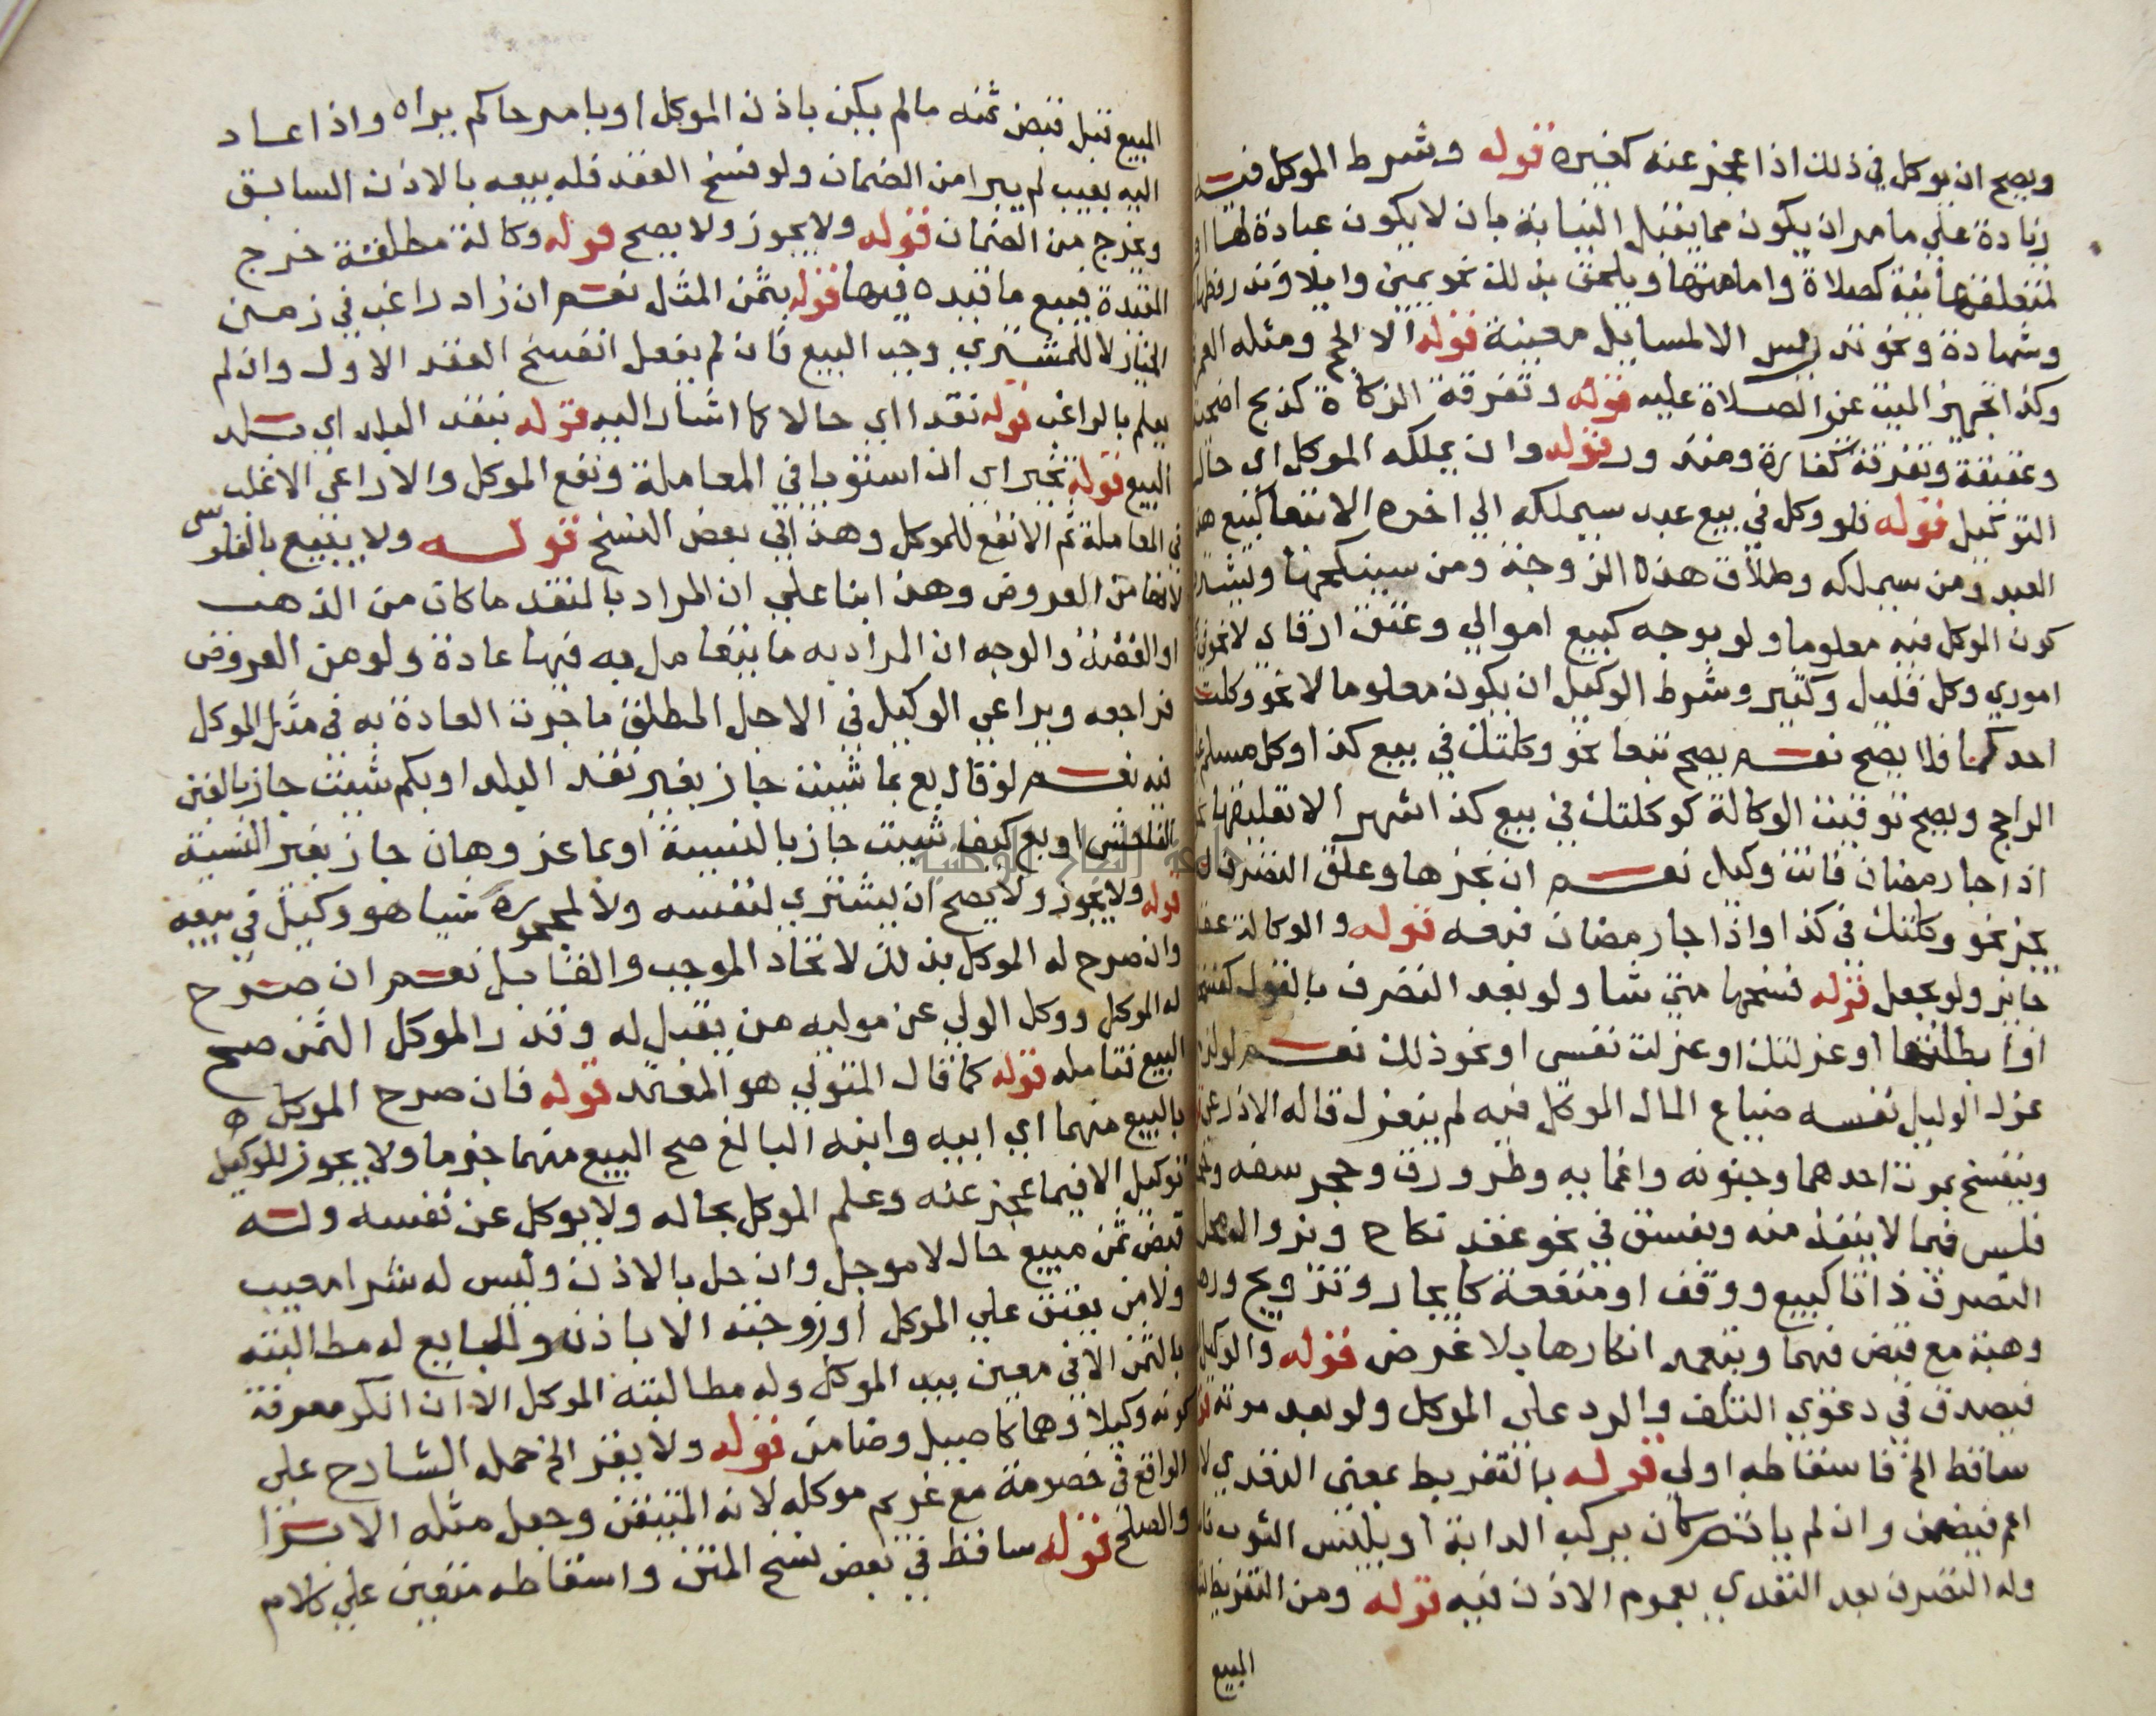 ويصح ان يوكل في ذلك اذا عجز عنه كغيره قوله وشرط الموكل فيه
زيادة على ما مر ان يكون مما يقبل النيابة بان لا يكون عبادة لها او
لمتعلقها نية كصلاة وامامتها ويلحق بذلك نحو يمين وايلا ونذر وظهار
وشهادة ونحو تدريس الا لمسايل معينة قوله الا الحج ومثله العمرة
وكذا تجهيز الميت عن الصلاة عليه قوله وتفرقة الزكاة كذبح اضحية
وعقيقة وتفرقة كفارة ومنذور قوله وان يملكه الموكل اي حال
التوكيل قوله فلو وكل في بيع عبد سيملكه الي اخره الا تبعا كبيع هذا
العبد ومن سيملكه وطلاق هذه الزوجة ومن سينكحها ويشترط
كون الموكل فيه معلوما ولو بوجه كبيع اموالي وعتق ارقاي لا نحو
اموري وكل قليل وكثير وشرط الوكيل ان يكون معلوما لا نحو وكلت
احدكما فلا يصح نعم يصح تبعا نحو وكلتك في بيع كذا وكل مسلم
الراجح ويصح توقيت الوكالة كوكلتك في بيع كذا شهرا لا تعليقها
اذا جا رمضان فانت وكيلي نعم ان نجزها وعلق التصرف
نحو وكلتك في كذا واذا جا رمضان فبعه قوله والوكالة عقد
جايز ولو بجعل قوله فسخها متى شا ولو بعد التصرف بالقول كفسختها
او ابطلتها او عزلتك او عزلت نفسي او نحو ذلك نعم لو لزم
عزل الوكيل نفسه ضياع المال الموكل فيه لم ينعزل قاله الاذرعي
وينفسخ بموت احدهما وجنونه واغمايه وطرو رق وحجر سفه
فلس فيما لا ينفذ منه وبفسق في نحو عقد نكاح وبزوال محل
التصرف ذاتا كبيع ووقف او منفعة كايجار وتزويج ورهن
وهبة مع قبض فيهما وبتعمد انكارها بلا غرض قوله والوكيل
فيصدق في دعوي التلف والرد على الموكل ولو بعد موته
ساقط الخ فاسقاطه اولي قوله بالتفريط بمعنى التعدي
اعم فيضمن وان لم ياثم كان يركب الدابة او يلبس الثوب
وله التصرف بعد التعدي بعموم الاذن فيه قوله ومن التفريط
المبيع
المبيع قبل قبض ثمنه ما لم يكن باذن الموكل او بامر حاكم يراه واذا عاد
اليه بعيب لم يبرا من الضمان ولو فسخ العقد فله بيعه بالاذن السابق
ويخرج من الضمان قوله ولا يجوز ولا يصح قوله وكالة مطلقة خرج
المقيدة فيبيع ما قيده فيها قوله بثمن المثل نعم ان زاد راغب في زمن
الخيار لا للمشتري وجب البيع فان لم يفعل انفسخ العقد الاول وان لم
يعلم بالراغب قوله نقدا اي حالا كما اشار اليه قوله بنقد البلد اي بلد
البيع قوله تخير اي ان استويا في المعاملة ونفع الموكل والا راعي الاغلب
في المعاملة ثم الانفع للموكل وهذا في بعض النسخ قوله ولا يبيع بالفلوس
لانها من العروض وهذا بنا على ان المراد بالنقد ما كان من الذهب
او الفضة والوجه ان المراد به ما يتعامل به فيها عادة ولو من العروض
فراجعه ويراعي الوكيل في الاجل المطلق ما جرت العادة به في مثل الموكل
فيه نعم لو قال بع بما شيت جاز بغير نقد البلد او بكم شيت جاز بالغبن
الفاحش او بع كيف شيت جاز بالنسية او بما عز وهان جاز بغير النسية
قوله ولا يجوز ولا يصح ان يشتري لنفسه ولا لمحجوره شيا هو وكيل في بيعه
وان صرح له الموكل بذلك لاتحاد الموجب والقابل نعم ان صرح
له الموكل ووكل الولي عن موليه من يقبل له وقدر الموكل الثمن صح
البيع فتامله قوله كما قال المتولي هو المعتمد قوله فان صرح الموكل ه
بالبيع منهما اي ابيه وابنه البالغ صح البيع منهما جزما ولا يجوز للوكيل
توكيل الا فيما عجز عنه وعلم الموكل بحاله ولا يوكل عن نفسه وله
قبض ثمن مبيع حال لا موجل وان حل بالاذن وليس له شرا معيب
ولا من يعتق على الموكل او زوجته الا باذنه وللبايع له مطالبته
بالثمن الا في معين بيد الموكل وله مطالبته الموكل الا ان انكر معرفة
كونه وكيلا وهما كاصيل وضامن قوله ولا يقر الخ حمله الشارح على
الواقع في خصومة مع غريم موكله لانه المتيقن وجعل مثله الابرا
والصلح قوله ساقط في بعض نسخ المتن واسقاطه متعين على كلام